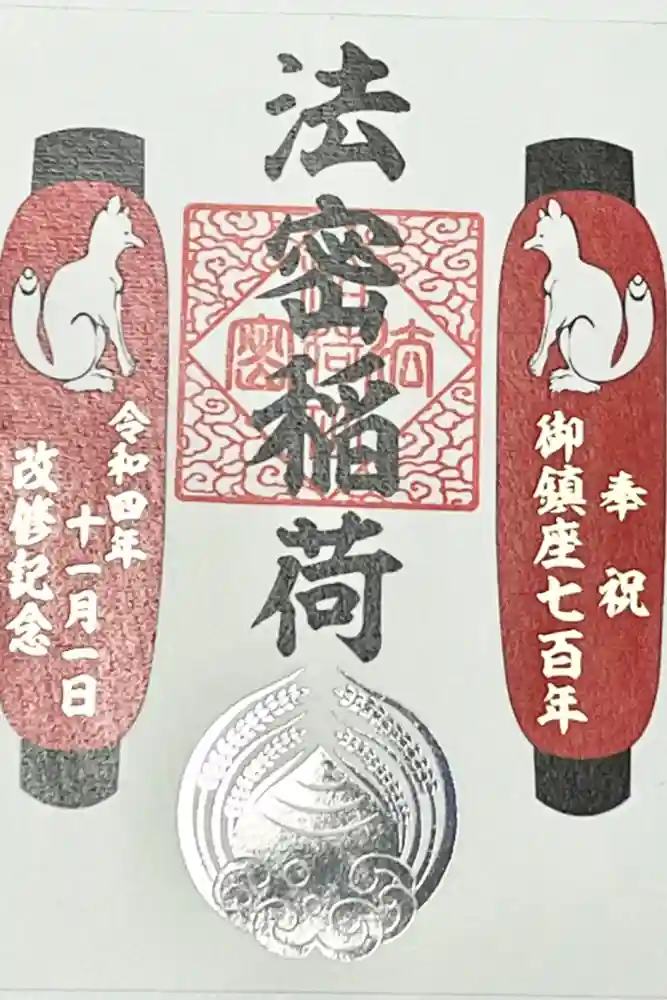 奉祝
御鎮座七百年
法密稲荷
令和四年
十一月一日
改修記念